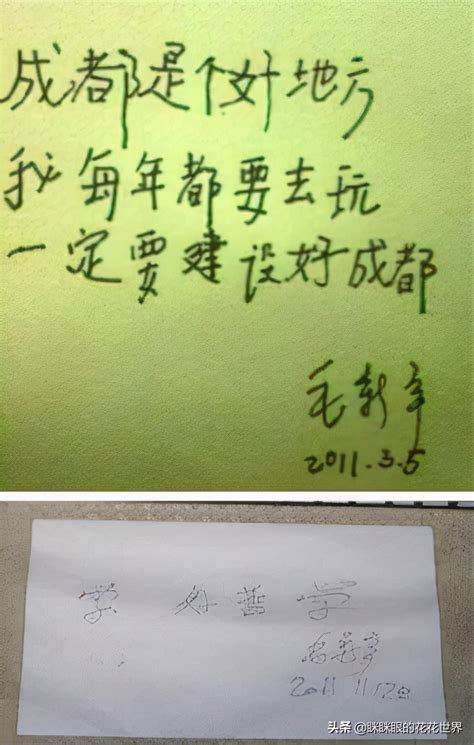 成都是个好地方
我每年都要去玩
一定要建设好成都
毛新宇
2011.3.5
学好哲学
毛新宇
2011 11 12日
头条 @眯眯眼的花花世界